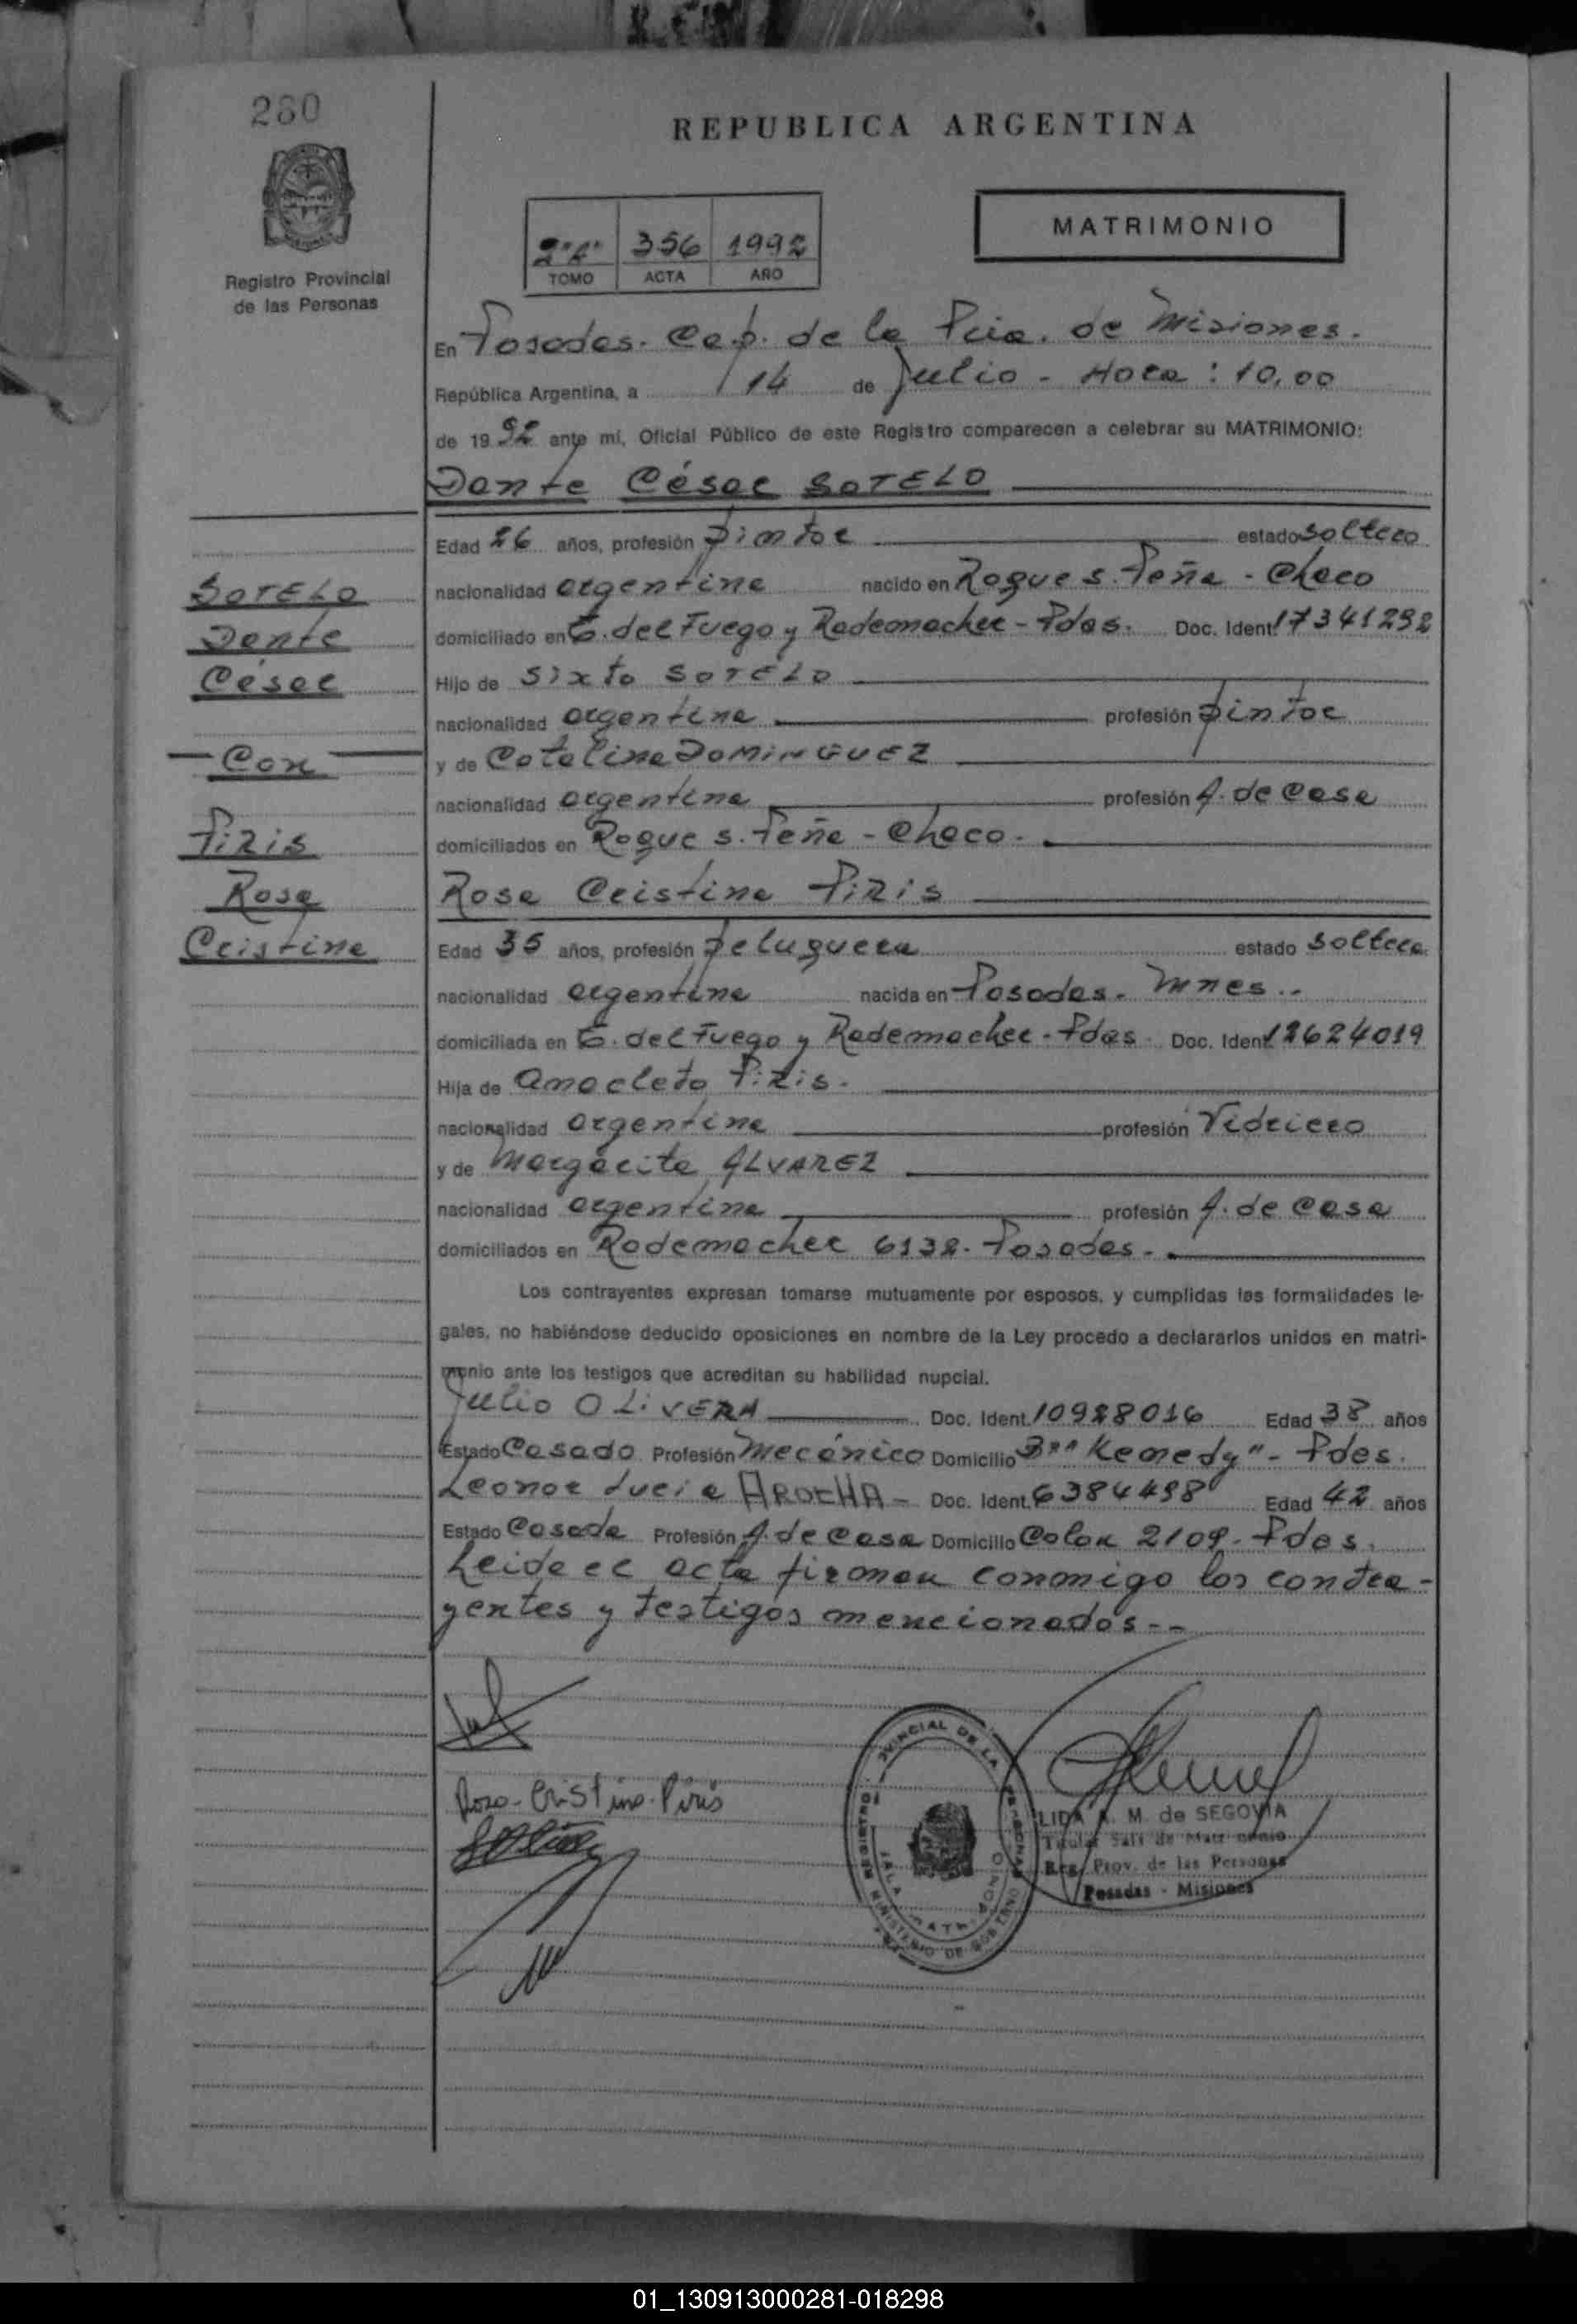 280
REPUBLICA ARGENTINA
MATRIMONIO
2° "A" 356 1992
TOMO ACTA AÑO
Registro Provincial
de las Personas
En Posadas. Cap. de la Pcia. de Misiones.
República Argentina, a 14 de Julio - Hora: 10,00
de 19 92 ante mí, Oficial Público de este Registro comparecen a celebrar su MATRIMONIO:
Dante César SOTELO
Edad 26 años, profesión pintor estado soltero
SOTELO
Dante
César
Con
Piris
Rosa
Cristina
nacionalidad argentina nacido en Roque S. Peña - Chaco
domiciliado en T. del Fuego y Rademacher - Pdas. Doc. Ident. 17341292
Hijo de Sixto SOTELO
nacionalidad argentina profesión pintor
y de Catalina DOMINGUEZ
nacionalidad argentina profesión A. de casa
domiciliados en Roque S. Peña - Chaco.
Rosa Cristina PiRiS
Edad 35 años, profesión peluquera estado soltera
nacionalidad argentina nacida en Posadas. Mnes.
domiciliada en T. del Fuego y Rademacher - Pdas Doc. Ident. 12624019
Hija de Anacleto Piris.
nacionalidad argentina profesión Vidriero
y de Margarita ALVAREZ
nacionalidad argentina profesión A. de casa
domiciliados en Rademacher 6132. Posadas.
Los contrayentes expresan tomarse mutuamente por esposos, y cumplidas las formalidades le-
gales, no habiéndose deducido oposiciones en nombre de la Ley procedo a declararlos unidos en matri-
monio ante los testigos que acreditan su habilidad nupcial.
Julio OLiVERA Doc. Ident. 10928016 Edad 38 años
Estado Casado Profesión Mecánico Domicilio B°" Kenedy" - Pdas.
Leonor Lucia AROCHA - Doc. Ident. 6384498 Edad 42 años
Estado Casada Profesión A. de casa Domicilio Colon 2109. Pdas.
Leida el acta firman conmigo los contra-
yentes y testigos mencionados --
Rosa Cristina Piris
LIDA A. M. de SEGOVIA
Titular Sala de Matrimonio
Reg. Prov. de las Personas
Posadas - Misiones
01_130913000281-018298